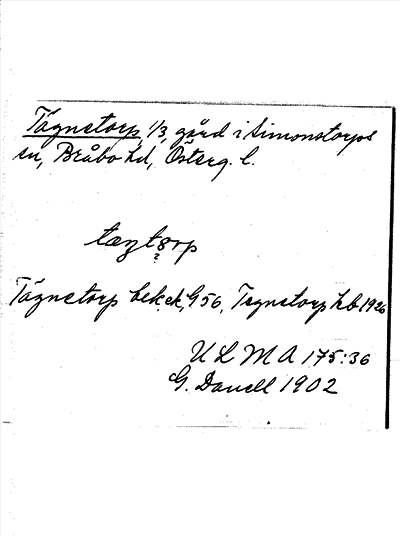 Tägnetorp, 1/3, gård i Simonstorps
sn, Bråbo hd, Österg. l.
tæŋtorp
?
Tägnetorp bek.ek. G 56, Tegnetorp hb 1926
U L M A 175:36
G. Danell 1902